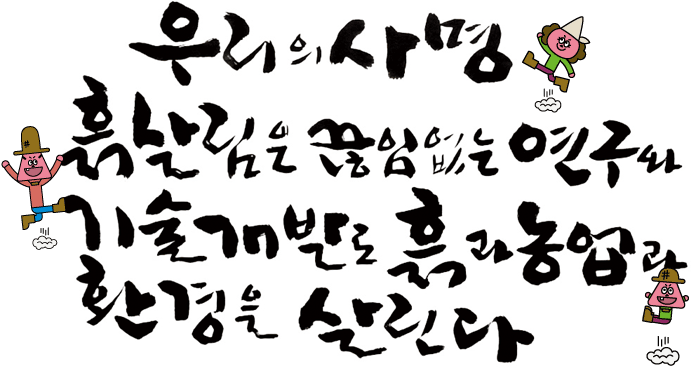 우리의 사명
흙살림은 끊임없는 연구와
기술개발로 흙과 농업과
환경을 살린다